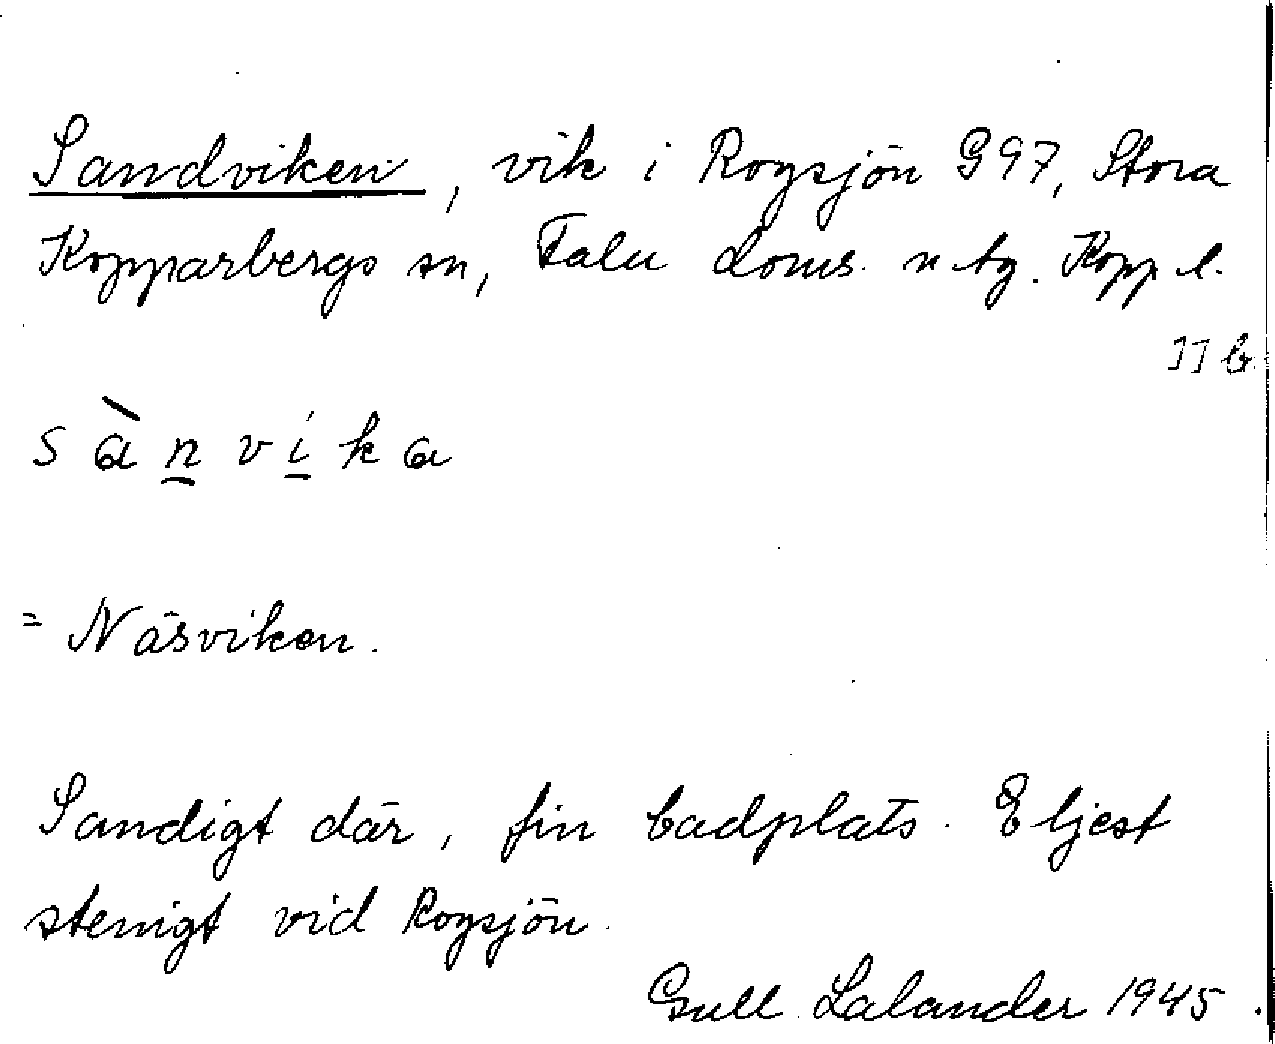 Sandviken, vik i Rogsjön G97, Stora
Kopparbergs sn, Falu Doms. n tg. Kopp l.
II b.
s à n v i k a
= Näsviken.
Sandigt där, fin badplats. Eljest
stenigt vid Rogsjön.
Gull Lalander 1945.